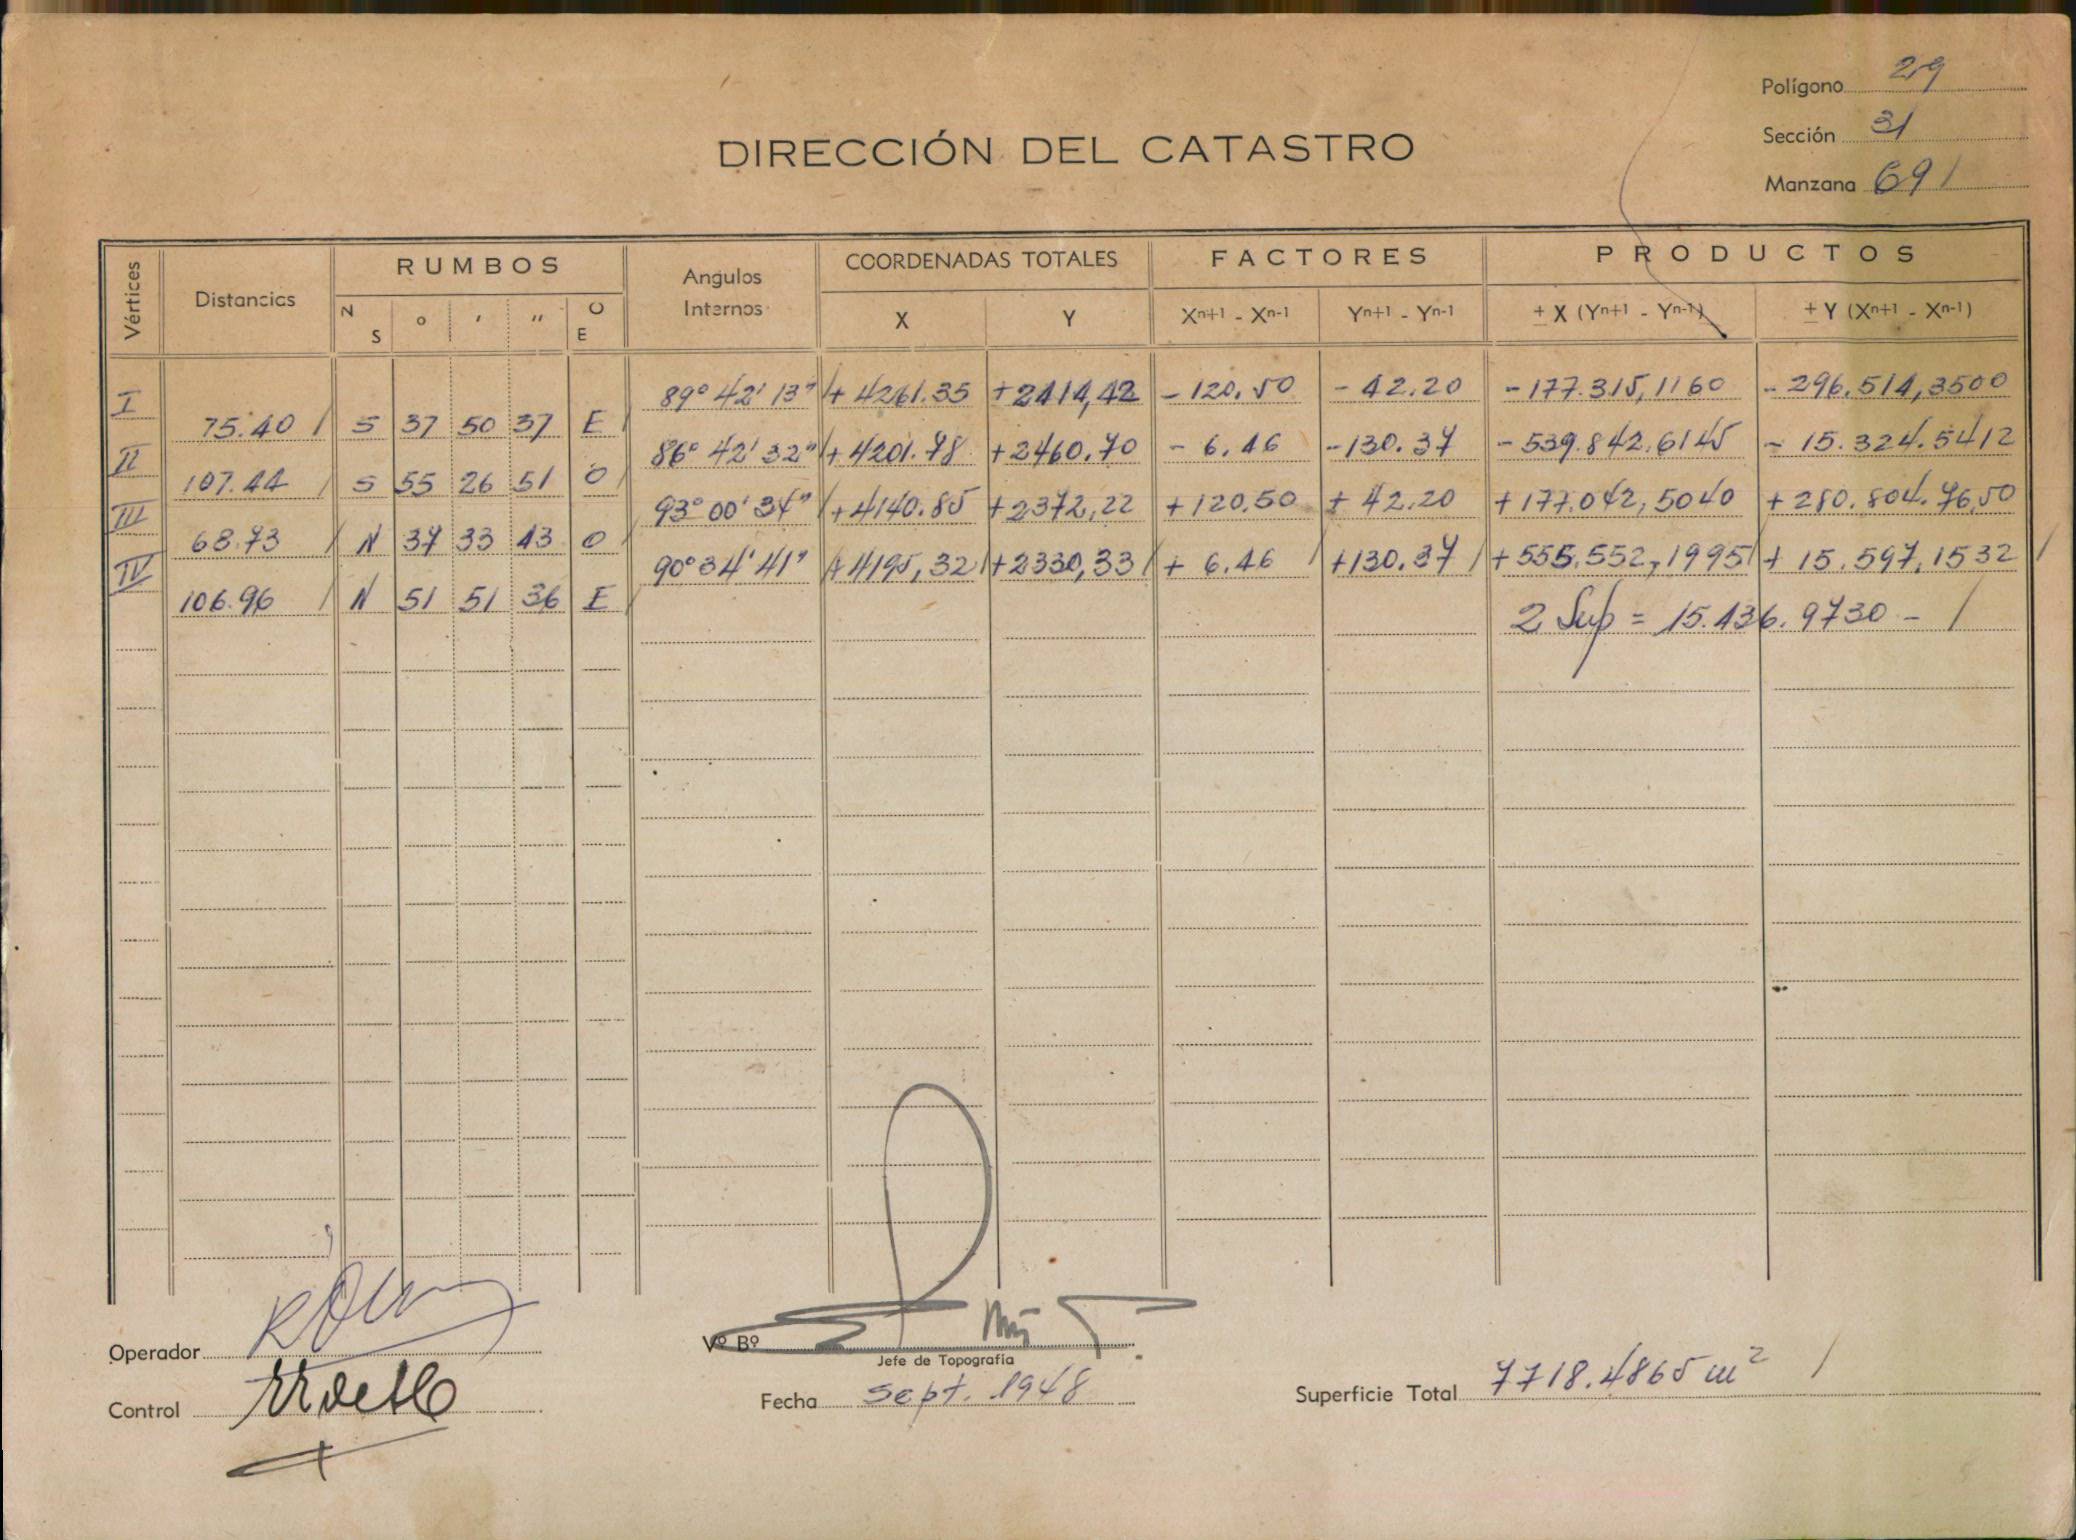 Polígono 29
Sección 31
Manzana 691
DIRECCIÓN DEL CATASTRO
Vértices Distancias RUMBOS Angulos Internos COORDENADAS TOTALES FACTORES PRODUCTOS
N S o ′ ″ O E X Y Xn+1 - Xn-1 Yn+1 - Yn-1 ± X (Yn+1 - Yn-1) ± Y (Xn+1 - Xn-1)
I 89° 42' 13" + 4261.35 +2414,42 - 120.50 - 42.20 - 177.315,1160 - 296.514,3500
75.40 S 37 50 37 E
II 86° 42' 32" + 4201.78 +2460.70 - 6.46 -130.37 - 539.842.6145 - 15.324.5412
107.44 S 55 26 51 O
III 93° 00' 34" + 4140.85 +2372,22 +120.50 + 42.20 +177.042,5040 + 280.804.7650
68.73 N 37 33 43 O
IV 90° 34' 41" + 4195,32 +2330,33 + 6.46 +130.37 +555.552,1995 + 15.597,1532
106.96 N 51 51 36 E
2 Sup = 15.436.9730 -
Operador
Vº Bº
Jefe de Topografía
Control
Fecha sept. 1948
Superficie Total 7718.4865 m²